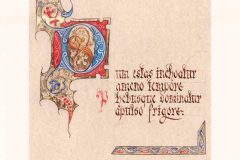 Dum estas inchoatur
ameno tempore
Phebusque dominatur
depulso frigore.